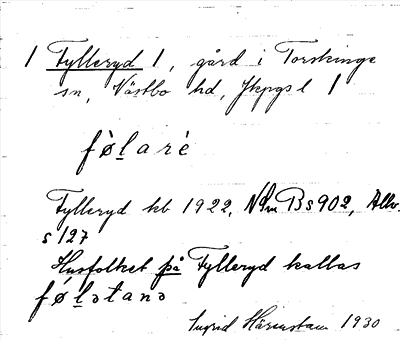 1 Fylleryd 1, gård i Torskinge
sn, Västbo hd, Jkpgs l 1
fø̀l̠arè
Fylleryd kb 1922, NSmBs902, Allv.
s 127
Husfolket på Fylleryd kallas
fǿl̠ətanə
Ingrid Härenstam 1930